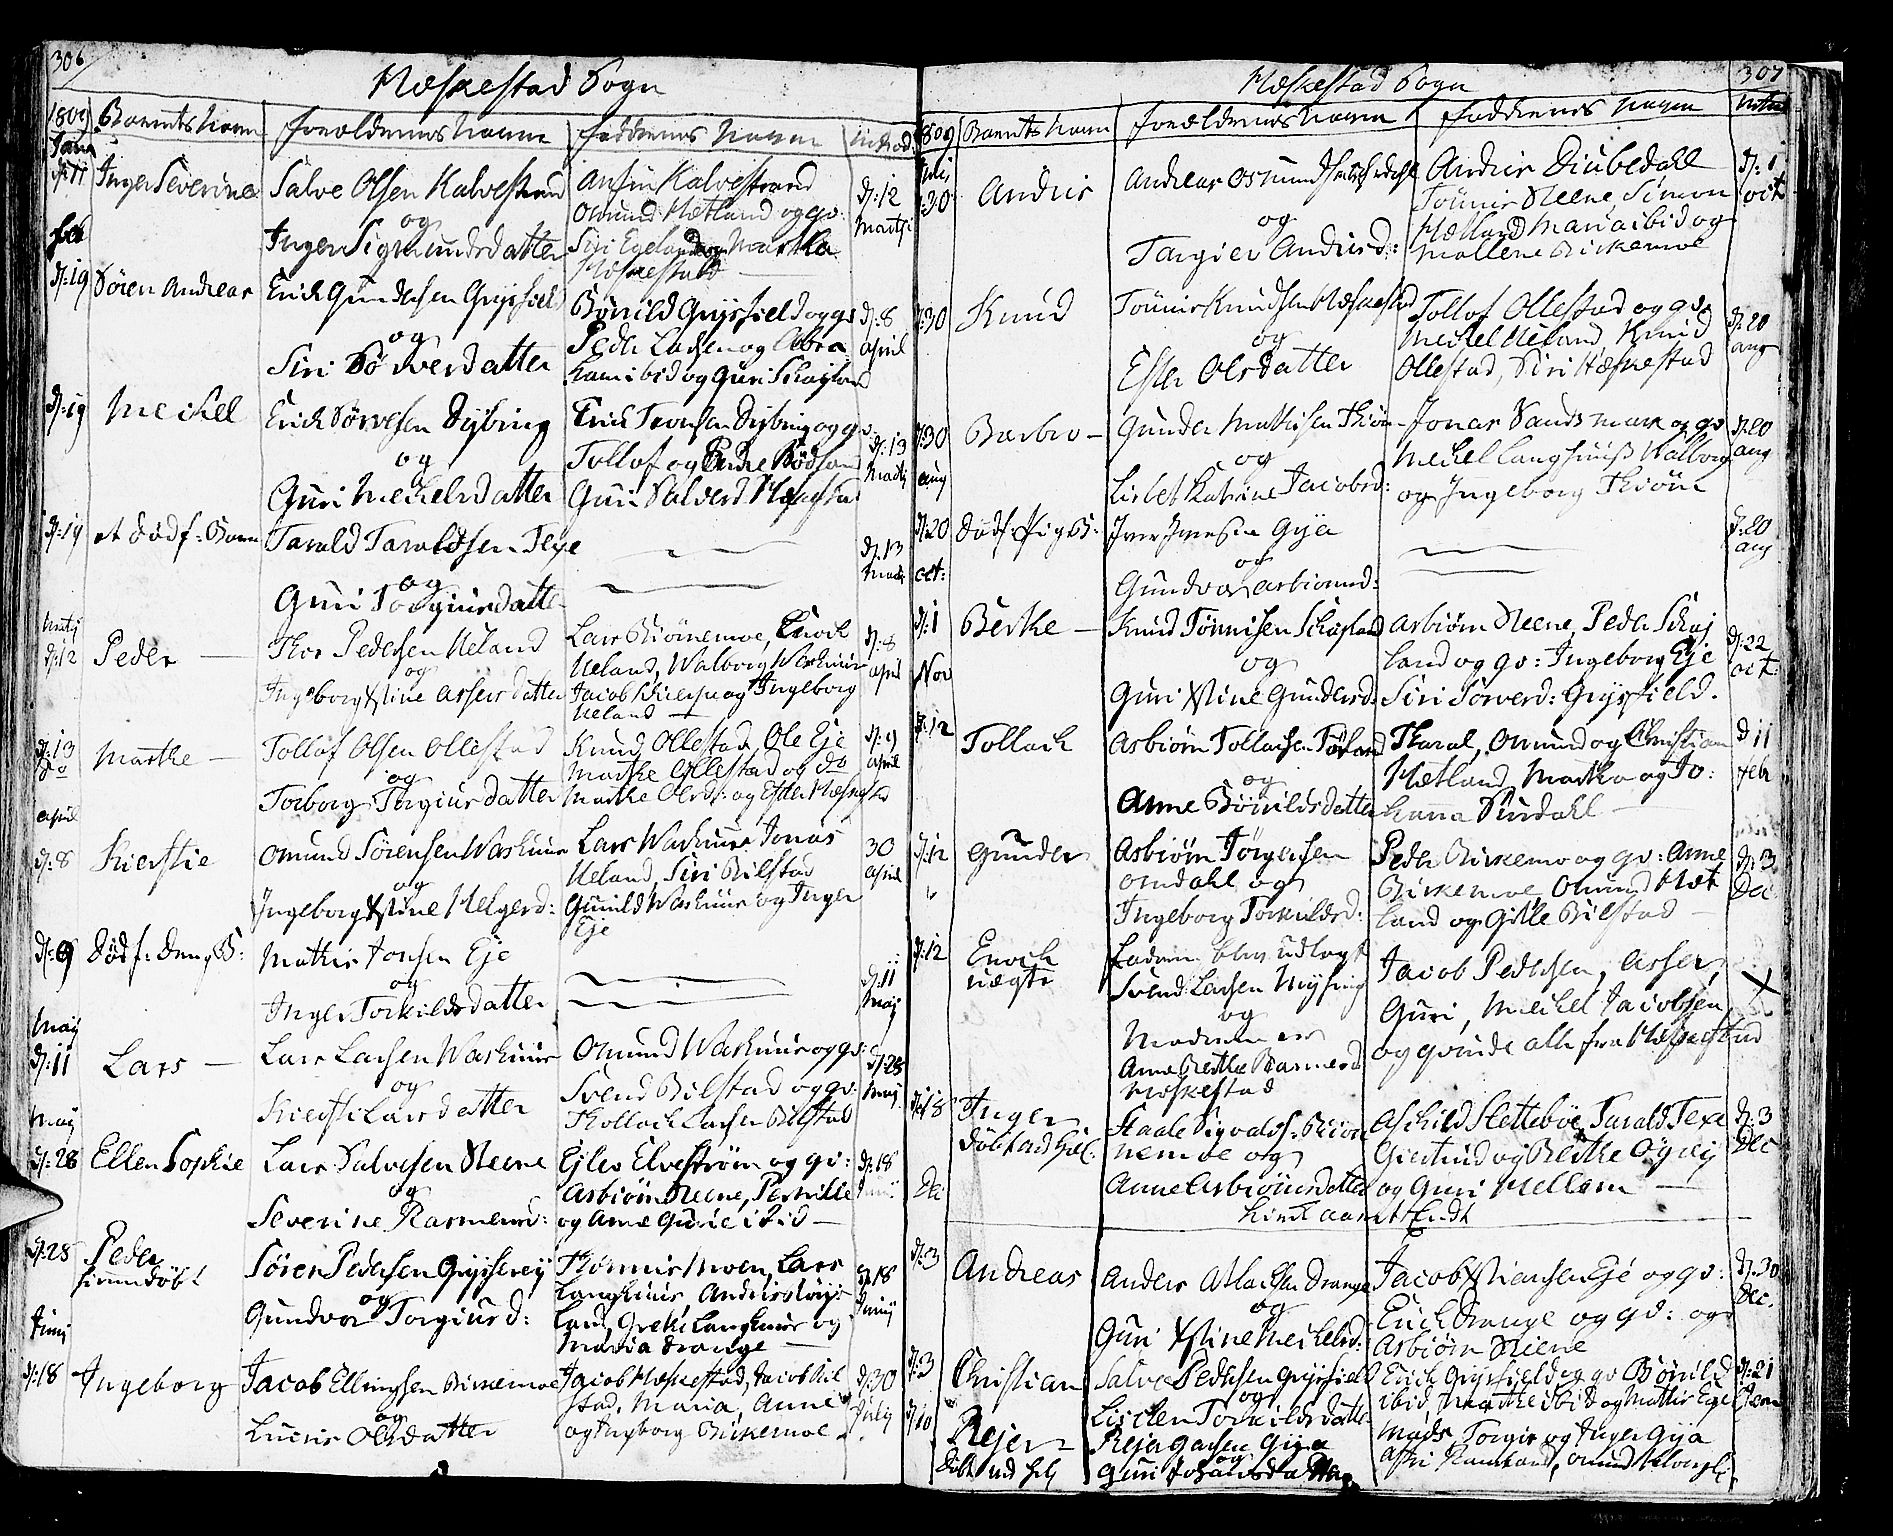 306
Heskestad Sogn
1809 Barnets Navn Forældrenes Navne Faddrenes Navne Introd:
Janu
d: 11 Inger Severine Salve Olsen Kalvestrand
og
Inger Sigmundsdatter
Ansten Kalvestrand
Omund Hætland og qv:
Siri Egeland og Martha
Heskestad
d: 12
Martj
feb
d: 19 Sören Andreas Erich Gundersen Gyrsfield
og
Siri Sörversdatter
Bönild Gyrsfield og qv
Peder Larsen og Abra
ham ibid og Guri Schajland
d: 8
April
d: 19 Meikel Erich Sörvesen Dybing
og
Guri Meikelsdatter
Erich Tronsen Dybing og qv:
Tollof og
Guri Salvesd Heskestad
d: 13
Martj
d: 19 et dödf: Barn Tarald Taraldsen Texe
og
Guri Torgiursdatter
d: 13
Martj
Martj
d: 12 Peder Thor Pedersen Ueland
og
Ingeborg Xstine Assersdatter
Lars Biörnemoe, Enoch
Ueland, Walborg Washuus
Jacob og Ingeborg
Ueland
d: 8
April
d: 13
do Marthe Tollof Olsen Ollestad
og
Torborg Torgiursdatter
Knud Ollestad, Ole Eje
Marthe Ollestad og do
Marthe Olsd: og Ester Heskestad
d: 9
April
April
d: 8 Kierstie Omund Sörensen Washuus
og
Ingeborg Xstine Helgesd:
Lars Washuus Jonas
Ueland, Siri Bilstad
Gunild Washuus og Inger
Eje
30
April
d: 9 Dödf: Dreng B: Mathis Jonsen Eje
og
Inger Torkildsdatter
d: 11
May
May
d: 11 Lars Lars Larsen Washuus
og
Kierstie Larsdatter
Omund Washuus og qv:
Svend Bilstad og qv:
Thollach Larsen Bilstad
d: 28
May
May
d: 28 Ellen Sophie Lars Salvesen Neene
og
Severine Rasmusd:
Ejlev Elveström og qv:
Asbiörn Neene, Pernille
og Anne Gurie ibid
d: 18
Junij
d: 28 Peder
hiemdöbt
Sören Pedersen Gyrserej
og
Gundvor Torgiursd:
Thönnis Moen, Lars
Langhuus, Anders
land, Grethe Langhuus og
Maria Drange
d: 18
Junij
Junij
d: 18 Ingeborg Jacob Ellingsen Birkemoe
og
Lucie Olsdatter
Jacob Heskestad, Jacob Bil
stad, Maria, Anne
og Ingborg Birkemoe
d: 30
July
Heskestad Sogn
307
1809 Barnets Navn Forældrenes Navne Faddrenes Navne Introd
Julij
30 Andreas
og
Torgier Andersd:
Anders Diubedahl
Tönnis Neene, Simon
Hætland Maria ibid og
Mallene Birkemoe
d: 1
oct
d: 30 Knud Tönnis Knudsen Heskestad
og
Ester Olsdatter
Tollof Ollestad og qv:
Meikel Ueland, Knud
Ollestad, Siri Heskestad
d: 20
aug
d: 30 Barbro Gunder Mathisen Thiörn
og
Lisbet Katrine Jacobsd:
Jonas Sandsmark og qv
Meikel Langhuus Walborg
og Ingeborg Thiörn
d: 20
aug
aug
d: 20 dödf: Pige B: Iver Iversen Gya
og
Gundvor Asbiörnsd:
d: 20
aug
oct:
d: 1 Berthe Knud Tönnisen Schajland
og
Guri Xstine Gundersd:
Asbiörn Neene, Peder Schaj
land og qv: Ingeborg Eje
Siri Sörverd: Gyrsfield.
d: 22
oct:
Nov
d: 12 Tollach Asbiörn Tollachsen Törland
og
Anne Bönildsdatter
Tharal, Omund og Christian
Hætland, Martha og Jo:
hanna Sindahl
d 11
febr
d: 12 Gunder Asbiörn Jörgensen
Omdahl og
Ingeborg Torkildsd:
Peder Birkemo og qv: Anne
Birkemoe, Omund Hæt
land og Gitle Bilstad
d: 3
Dec
d: 12 Enoch
uægte
Faderen blev udlagt
Svend Larsen
og
Moderen er
Anne Berthe Rasmusd
Heskestad
Jacob Pedersen, Asser,
Guri, Meikel Jacobsen
og qvinde alle fra Heskestad
X
d: 18 Inger
döbt
Staale Sigvalds: Biör
nemoe og
Anne Asbiörnsdatter
Aschild Sletteböe, Tarald Texe
Giertrud og Berthe Öyrej
og Guri Mellem
d: 3
Dec
Kirke aaret Endt
Dec
d: 3 Andreas Anders Atlachsen Drange
og
Guri Xstine Meikelsd:
Jacob Xtiansen Eje og qv:
Erich Drange og qv: og
Asbiörn Neene
d: 30
Dec.
d: 3 Christian Salve Pedersen Gyrsfield
og
Lischen Torkildsdatter
Erich Gyrsfield og qv Bönild
ibid, Marthe ibid og Mathis Eje
d: 21
Janu
d: 10 Rejer
Reja Gya
og
Guri
Mads Torgis og Inger Gya